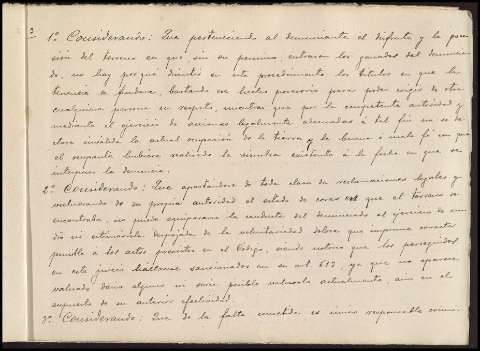 3
1º Considerando: Que perteneciendo al denunciante el disfrute y la pose-
sión del terreno en que, sin su permiso, entraron los ganados del denuncia-
do, no hay por qué discutir en este procedimiento los títulos en que la
tenencia se fundara, bastando ese hecho posesorio para poder exigir de otra
cualquiera persona su respeto, mientras que por la competente autoridad y
mediante el ejercicio de acciones legalmente adecuadas á del fin no se de-
clare invalida la actual ocupación de la tierra y la buena ó mala fé en que
el ocupante hubiere realizado la siembra existente á la fecha en que se
interpuso la denuncia.
2º Considerando: Que apartándose de toda clase de reclamaciones legales y
de su propia autoridad el estado de cosas en que el terreno se
encontraba, no puede equipararse la conducta del denunciado al ejercicio de
ni estimársela despojada de la voluntariedad dolosa que imprime carácter
penable á los actos previstos en el Código, siendo notorio que los perseguidos
en este juicio hállanse sancionados en su art. 613, ya que no aparece
valuado daño alguno ni sería posible valuarlo actualmente, aun en el
supuesto de su anterior efectividad.
3º Considerando: Que de la falta cometida es único responsable como